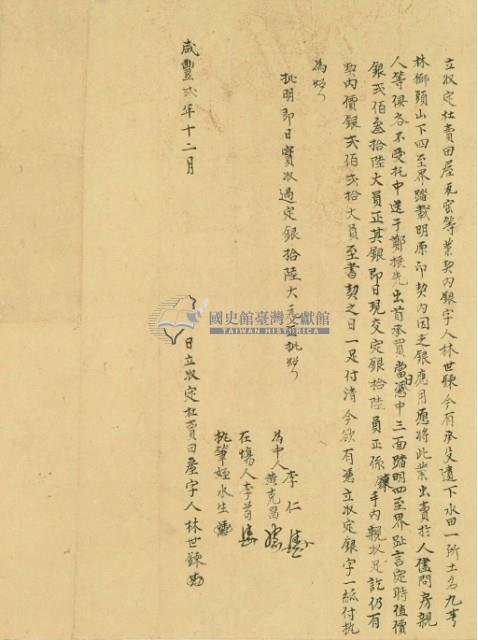 立收定杜賣田屋瓦窑等業契內銀字人林世鍊今有承父遺下水田一所土名九芎
林獅頭山下四至界踏載明原印契內因乏銀應用愿將此業出賣於人儘問房親
人等俱各不受托中送于鄭振先出首承買當日憑中三面踏明四至界趾言定時值價
銀弍佰叁拾陸大員正其銀即日現交定銀拾陸員正係鍊手內親收足訖仍有
契內價銀弍佰弍拾大員至書契之日一足付清今欲有憑立收定銀字一紙付執
為炤
批明即日實收過定銀拾陸大元 批炤
為中人李仁
黃克昌
在塲人李
執筆姪水生
咸豐弍年十二月 日立收定杜賣田屋字人林世鍊
國史館臺灣文獻館
TAIWAN HISTORICA